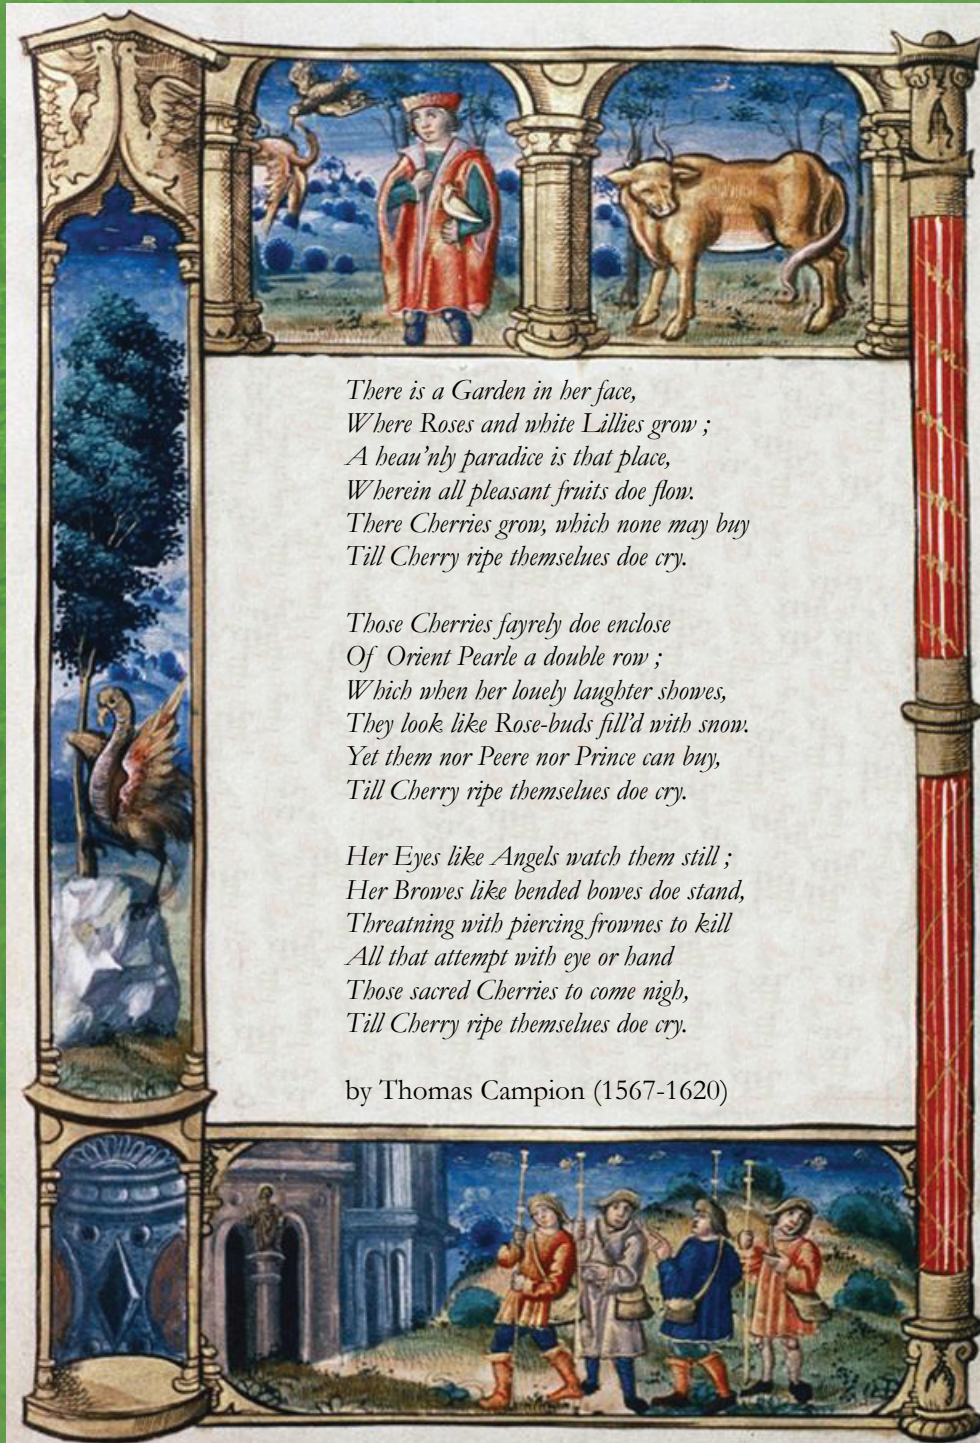 There is a Garden in her face,
Where Roses and white Lillies grow ;
A heau'nly paradice is that place,
Wherein all pleasant fruits doe flow.
There Cherries grow, which none may buy
Till Cherry ripe themselues doe cry.

Those Cherries fayrely doe enclose
Of Orient Pearle a double row ;
Which when her louely laughter showes,
They look like Rose-buds fill'd with snow.
Yet them nor Peere nor Prince can buy,
Till Cherry ripe themselues doe cry.

Her Eyes like Angels watch them still ;
Her Browes like bended bowes doe stand,
Threatning with piercing frownes to kill
All that attempt with eye or hand
Those sacred Cherries to come nigh,
Till Cherry ripe themselues doe cry.

by Thomas Campion (1567-1620)